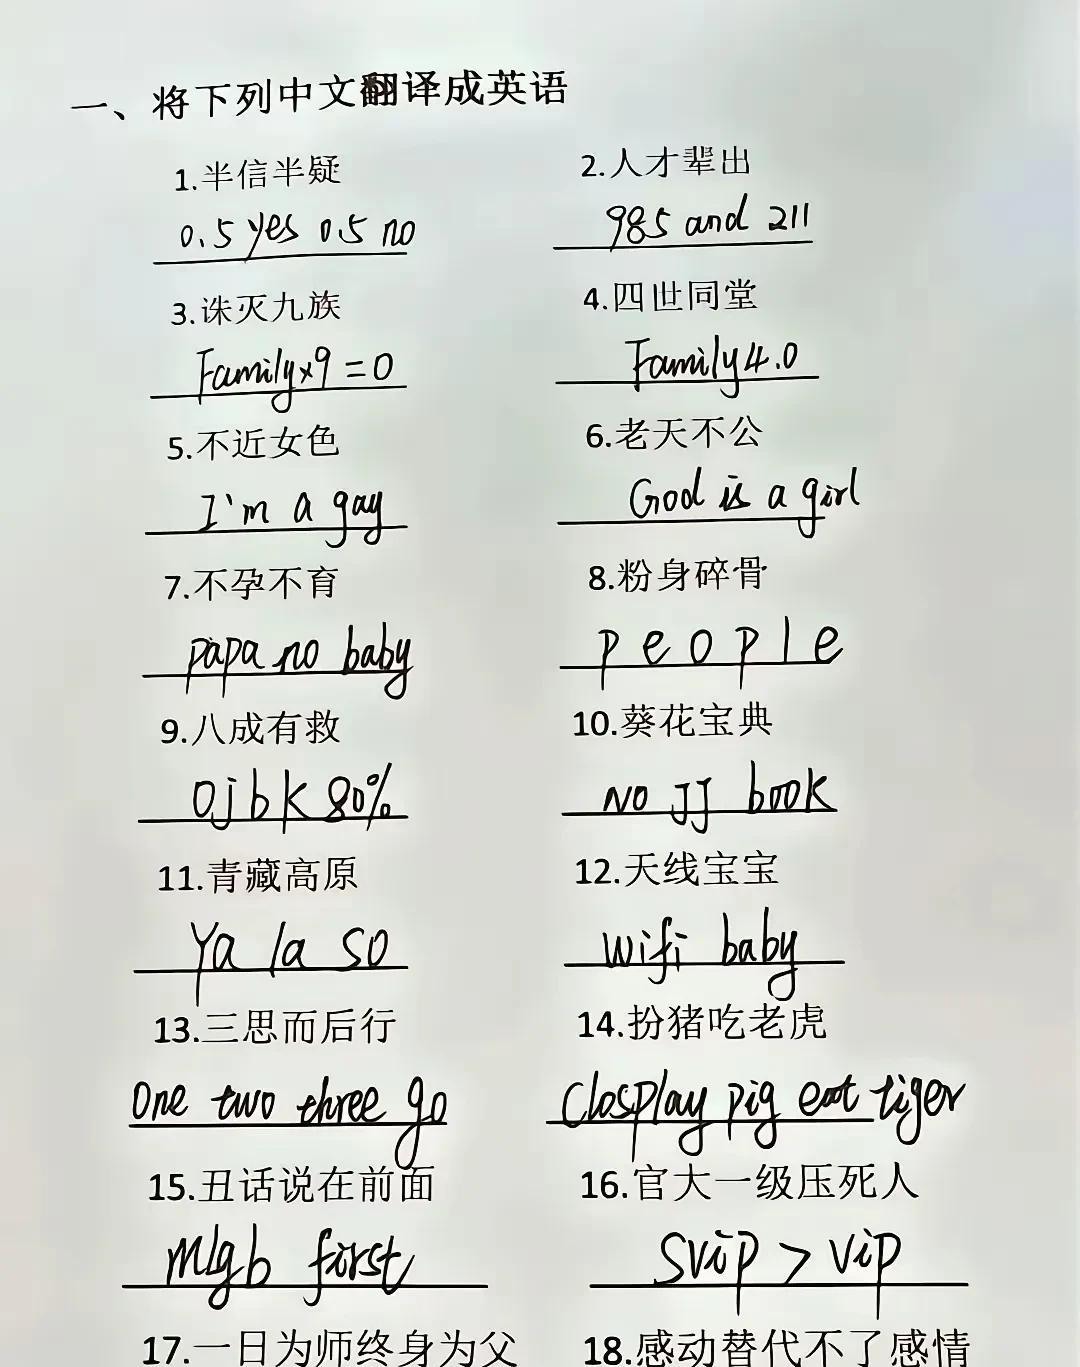 一、将下列中文翻译成英语
1.半信半疑
2.人才辈出
0.5 yes 0.5 no
985 and 211
3.诛灭九族
4.四世同堂
Family×9=0
Family4.0
5.不近女色
6.老天不公
I'm a gay
God is a girl
7.不孕不育
8.粉身碎骨
papa no baby
p e o p l e
9.八成有救
10.葵花宝典
Ojbk 80%
NO JJ book
11.青藏高原
12.天线宝宝
Ya la so
wifi baby
13.三思而后行
14.扮猪吃老虎
One two three go
Closplay pig eat tiger
15.丑话说在前面
16.官大一级压死人
mlgb first
Svip > vip
17.一日为师终身为父
18.感动替代不了感情